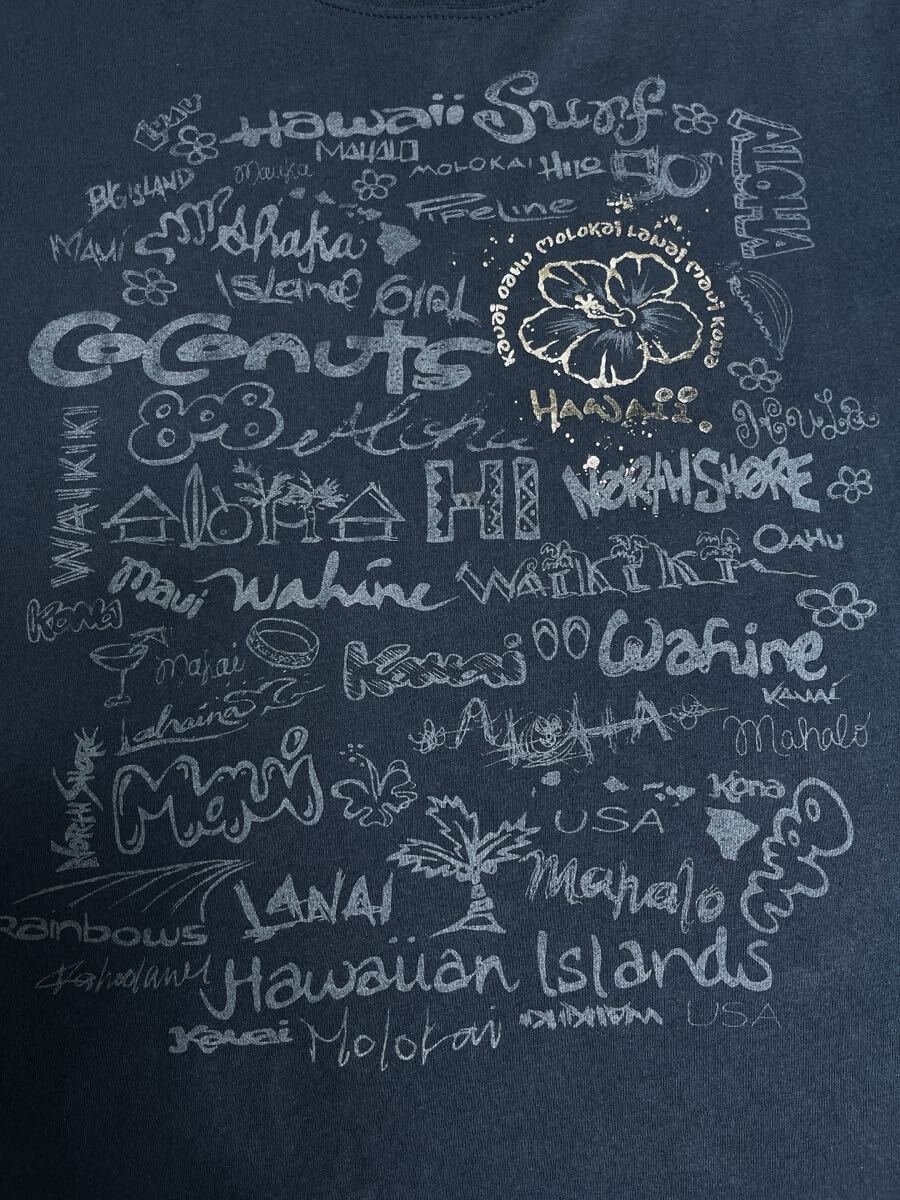 Hawaii Surf
ALOHA
MAHALO
Mauka
MOLOKAI
HILO
BIG ISLAND
PIPELINE
MAUI
Shaka
Kauai Oahu Molokai Lanai Maui Kona
HAWAII
ISLAND GIRL
COCONUTS
WAIKIKI
808
Aloha
Hula
ALOHA
HI
NORTH SHORE
OAHU
Maui
Wahine
WAIKIKI
KONA
Makai
Kauai
Wahine
KAUAI
Lahaina
ALOHA
Mahalo
NORTH SHORE
Maui
USA
Kona
Oahu
Rainbows
LANAI
Mahalo
Kahoolawe
Hawaiian Islands
Kauai
Molokai
WAIKIKI
USA